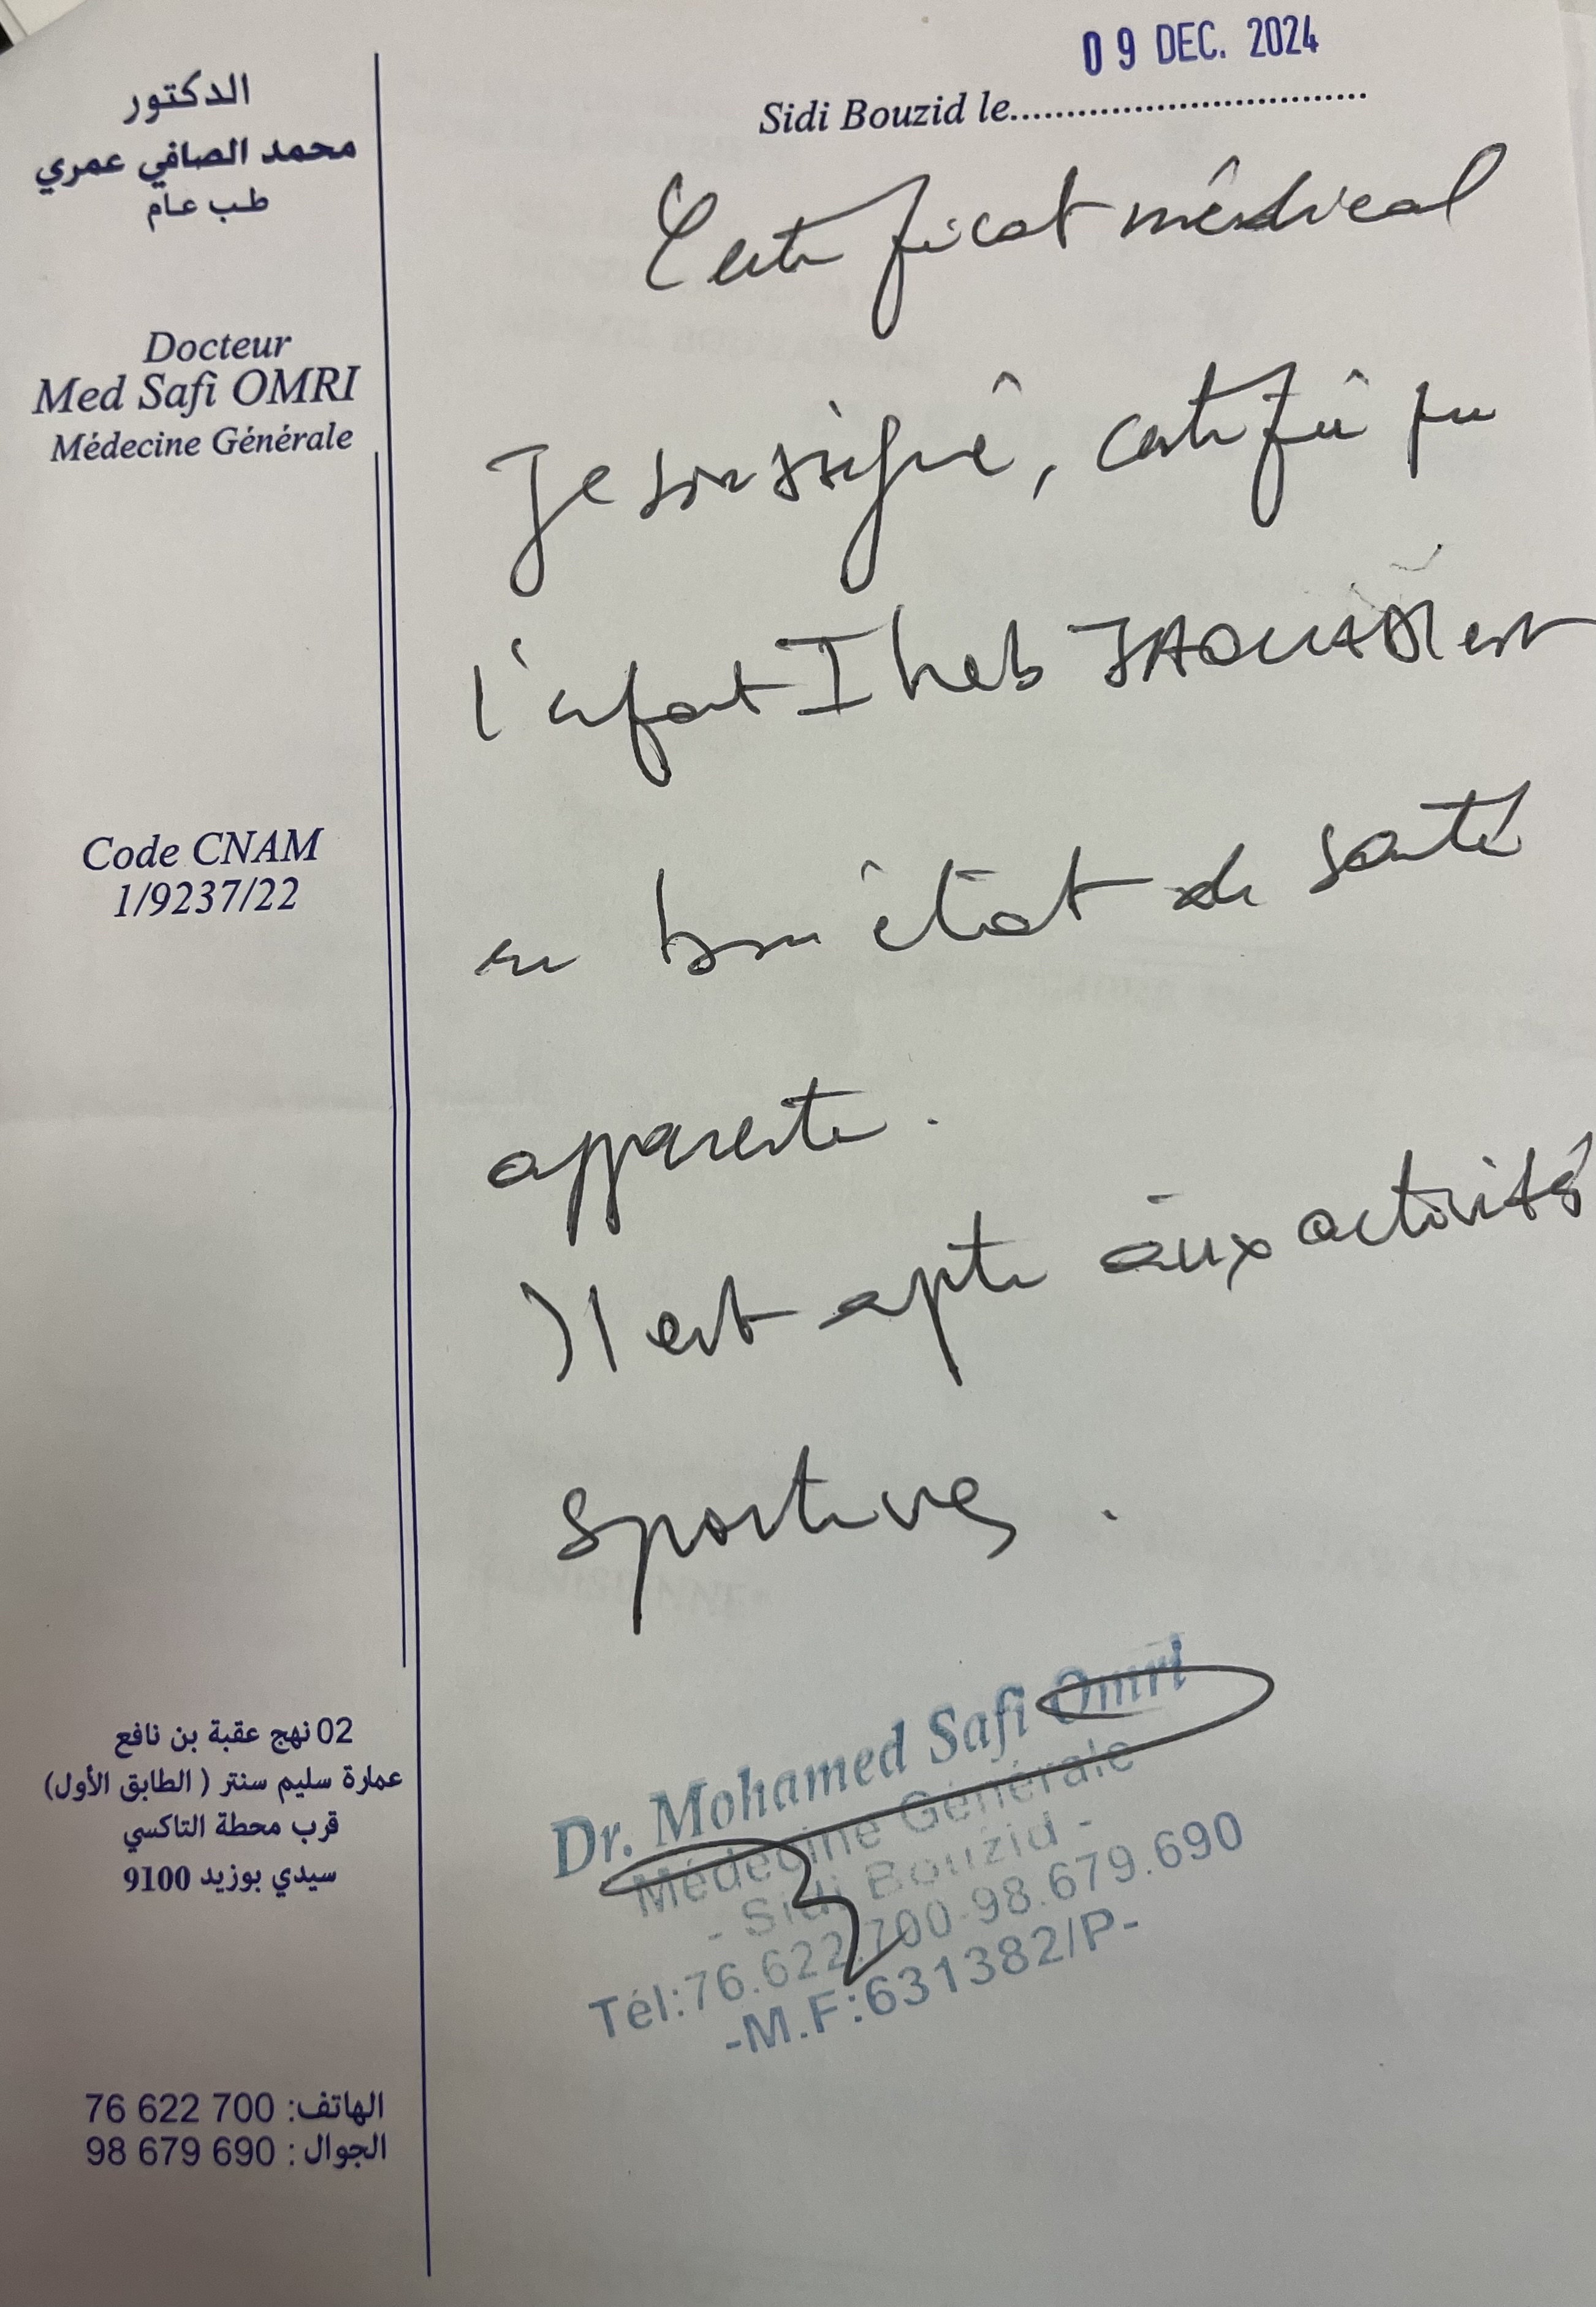 الدكتور
محمد الصافي عمري
طب عام
Docteur
Med Safi OMRI
Médecine Générale
Code CNAM
1/9237/22
02 نهج عقبة بن نافع
عمارة سليم سنتر ( الطابق الأول)
قرب محطة التاكسي
سيدي بوزيد 9100
الهاتف: 76 622 700
الجوال : 98 679 690
09 DEC. 2024
Sidi Bouzid le
Certificat médical
Je soussigné, certifie que
l'enfant Iheb est
en bon état de santé
apparente.
Il est apte aux activités
sportives.
Dr. Mohamed Safi Omri
Médecine Générale
- Sidi Bouzid -
Tél:76.622.700-98.679.690
-M.F:631382/P-